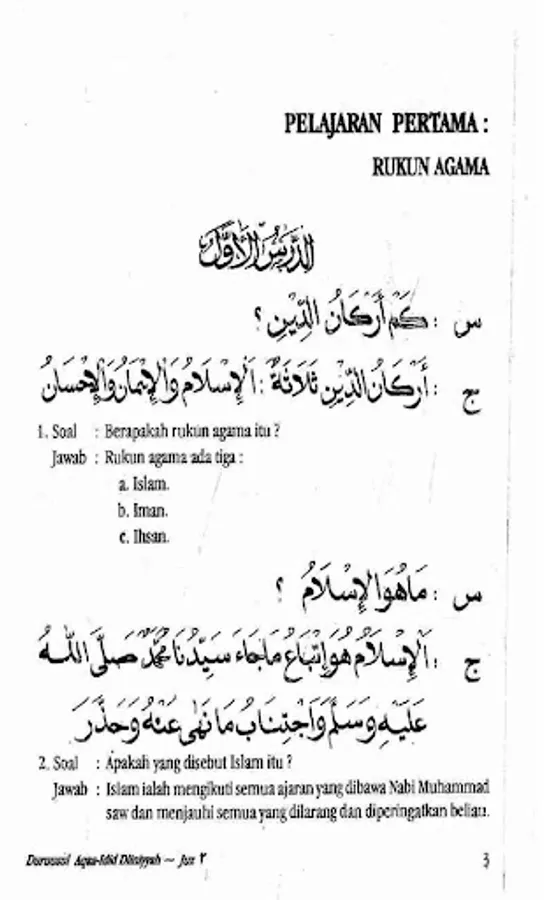 PELAJARAN PERTAMA :
RUKUN AGAMA
الدَّرْسُ الْأَوَّلُ
س : كَمْ أَرْكَانُ الدِّيْنِ ؟
ج : أَرْكَانُ الدِّيْنِ ثَلَاثَةٌ : اَلْإِسْلَامُ وَالْإِيْمَانُ وَالْإِحْسَانُ
1. Soal : Berapakah rukun agama itu ?
Jawab : Rukun agama ada tiga :
a. Islam.
b. Iman.
c. Ihsan.
س : مَا هُوَ الْإِسْلَامُ ؟
ج : اَلْإِسْلَامُ هُوَ اِتْبَاعُ مَا جَاءَ سَيِّدُنَا مُحَمَّدٌ صَلَّى اللهُ
عَلَيْهِ وَسَلَّمَ وَاجْتِنَابُ مَا نَهَى عَنْهُ وَحَذَّرَ
2. Soal : Apakah yang disebut Islam itu ?
Jawab : Islam ialah mengikuti semua ajaran yang dibawa Nabi Muhammad
saw dan menjauhi semua yang dilarang dan diperingatkan beliau.
Duruusul Aqaa-idid Diiniyyah — Juz ٢ 3